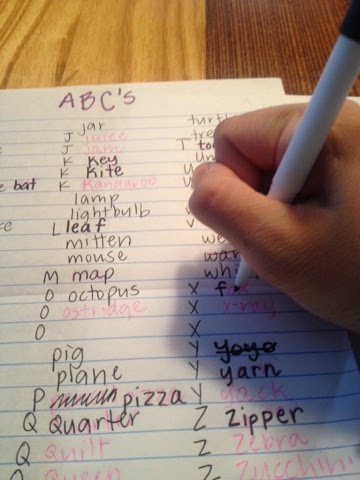 ABC's
jar
J juice
J Jam
K Key
K Kite
e bat K Kangaroo
lamp
lightbulb
L leaf
mitten
mouse
M map
O octopus
O ostridge
O
pig
plane
P pizza
Q Quarter
Q Quilt
Queen
turt
tre
T to
Un
U
V
we
wa
whi
X fox
X x-ray
X
Y yoyo
Y yarn
Y yack
Z Zipper
Z Zebra
Z Zucchini